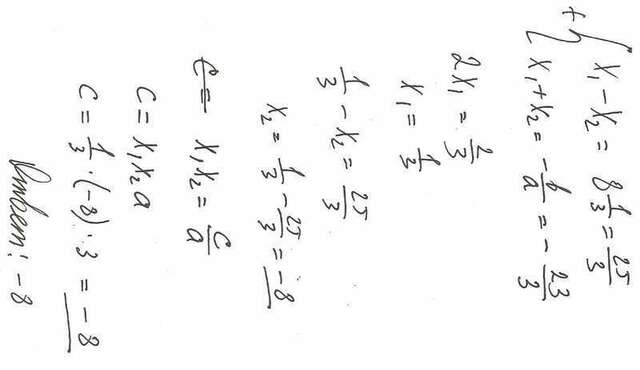 + { x₁ - x₂ = 8 1/3 = 25/3
x₁ + x₂ = - b/a = - 23/3
2x₁ = 2/3
x₁ = 1/3
1/3 - x₂ = 25/3
x₂ = 1/3 - 25/3 = -8
c = x₁x₂ = c/a
c = x₁x₂a
c = 1/3 · (-8) · 3 = -8
Ответ: -8